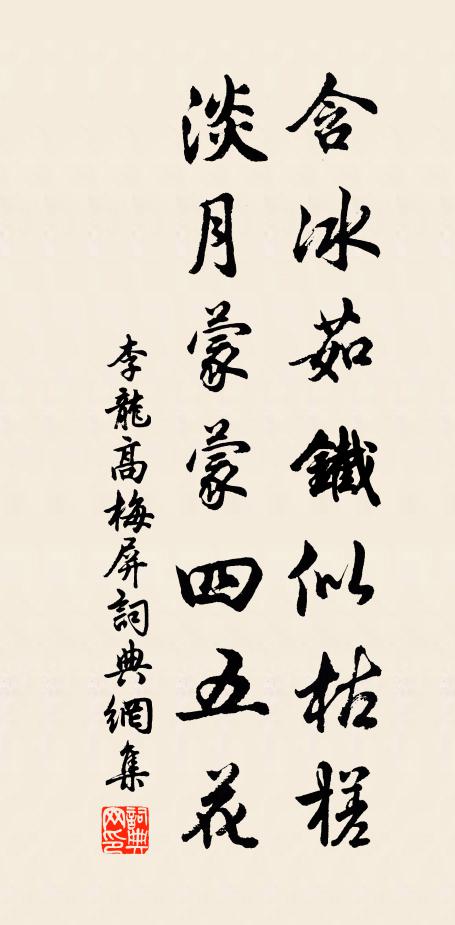 含冰茹鐵似枯槎
淡月蒙蒙四五花
李龍高梅屏詞典網集
詞典网印